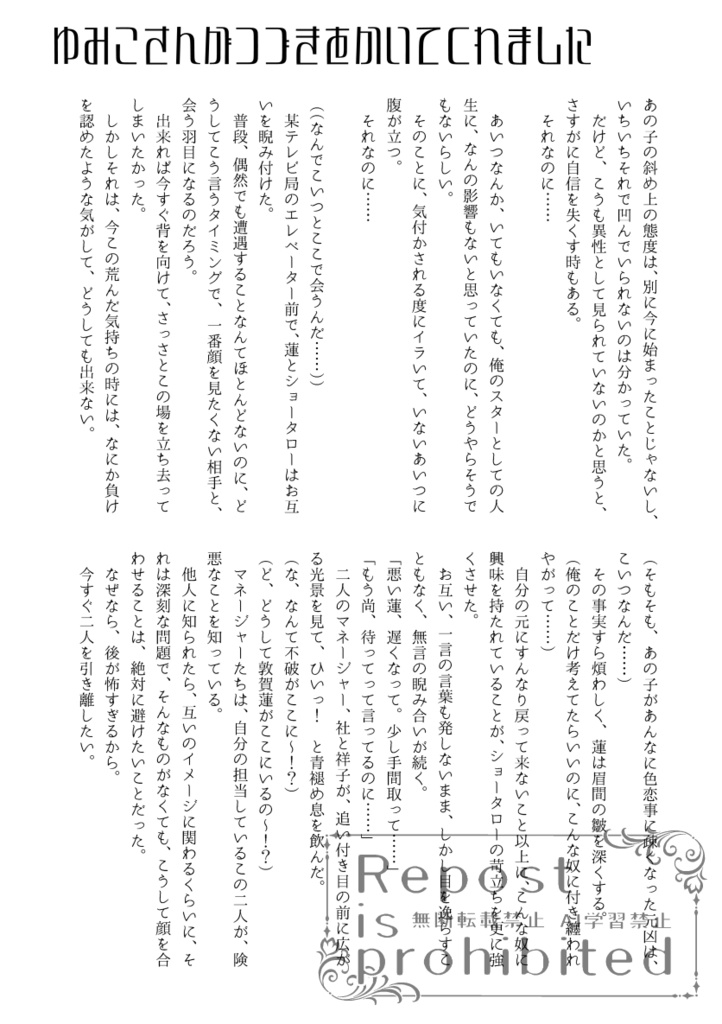 ゆみこさんがつづきをかいてくれました
あの子の斜め上の態度は、別に今に始まったことじゃないし、
いちいちそれで凹んでいられないのは分かっていた。
だけど、こうも異性として見られていないのかと思うと、
さすがに自信を失くす時もある。
それなのに……
あいつなんか、いてもいなくても、俺のスターとしての人
生に、なんの影響もないと思っていたのに、どうやらそうで
もないらしい。
そのことに、気付かされる度にイラいて、いないあいつに
腹が立つ。
それなのに……
((なんでこいつとここで会うんだ……))
某テレビ局のエレベーター前で、蓮とショータローはお互
いを睨み付けた。
普段、偶然でも遭遇することなんてほとんどないのに、ど
うしてこう言うタイミングで、一番顔を見たくない相手と、
会う羽目になるのだろう。
出来れば今すぐ背を向けて、さっさとこの場を立ち去って
しまいたかった。
しかしそれは、今この荒んだ気持ちの時には、なにか負け
を認めたような気がして、どうしても出来ない。
(そもそも、あの子があんなに色恋事に疎くなった元凶は、
こいつなんだ……)
その事実すら煩わしく、蓮は眉間の皺を深くする。
(俺のことだけ考えてたらいいのに、こんな奴に付き纏われ
やがって……)
自分の元にすんなり戻って来ないこと以上に、こんな奴に
興味を持たれていることが、ショータローの苛立ちを更に強
くさせた。
お互い、一言の言葉も発しないまま、しかし目を逸らすこ
ともなく、無言の睨み合いが続く。
「悪い蓮、遅くなって。少し手間取って……」
「もう尚、待ってって言ってるのに……」
二人のマネージャー、社と祥子が、追い付き目の前に広が
る光景を見て、ひいっ！　と青褪め息を飲んだ。
(な、なんて不破がここに〜！？)
(ど、どうして敦賀蓮がここにいるの〜！？)
マネージャーたちは、自分の担当しているこの二人が、険
悪なことを知っている。
他人に知られたら、互いのイメージに関わるくらいに、そ
れは深刻な問題で、そんなものがなくても、こうして顔を合
わせることは、絶対に避けたいことだった。
なぜなら、後が怖すぎるから。
今すぐ二人を引き離したい。
Repost
is
prohibited
無断転載禁止　AI学習禁止